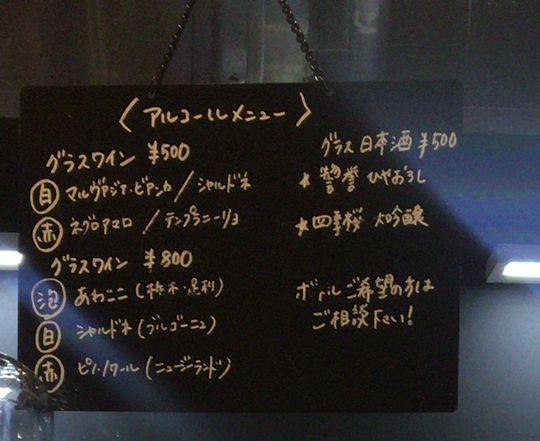 〈アルコールメニュー〉
グラスワイン ¥500
白 マルヴァジア・ビアンカ / シャルドネ
赤 ネグロアマロ / テンプラニーリョ
グラスワイン ¥800
泡 あわここ (栃木・足利)
白 シャルドネ (ブルゴーニュ)
赤 ピノノワール (ニュージーランド)
グラス日本酒 ¥500
★ 誉 ひやおろし
★ 四季桜 大吟醸
ボトルご希望の方は
ご相談下さい!